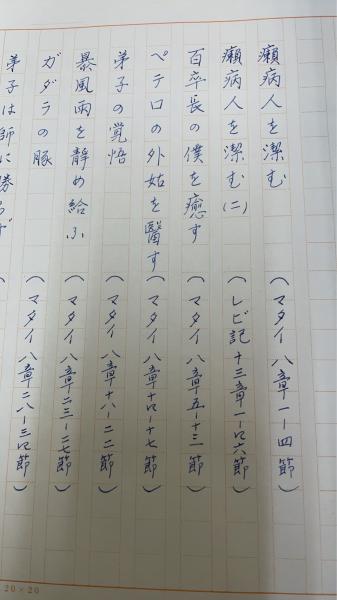 癩病人を潔む （マタイ 八章一-四節）
癩病人を潔む（二） （レビ記 十三章一-四六節）
百卒長の僕を癒す （マタイ 八章五-十三節）
ペテロの外姑を醫す （マタイ 八章十四-十七節）
弟子の覚悟 （マタイ 八章十八-二二節）
暴風雨を静め給ふ （マタイ 八章二三-二七節）
ガダラの豚 （マタイ 八章二八-三四節）
弟子は師に勝らず （
20×20